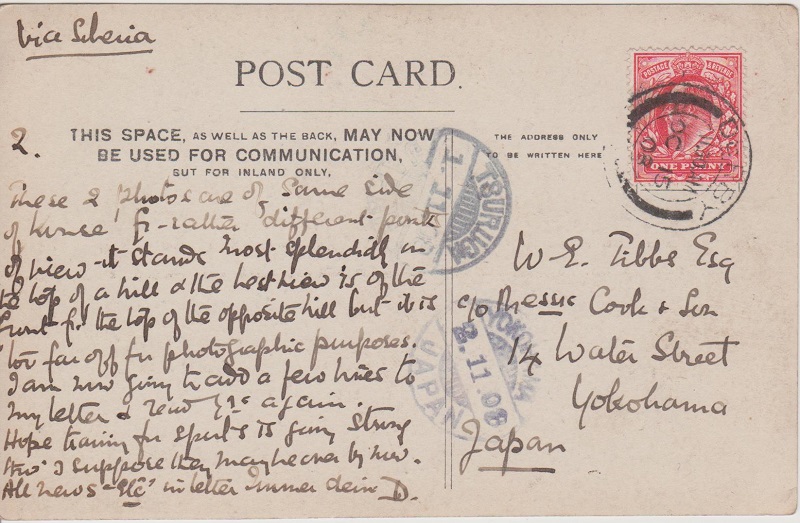 Via Siberia
POST CARD.
2.
THIS SPACE, AS WELL AS THE BACK, MAY NOW
BE USED FOR COMMUNICATION,
BUT FOR INLAND ONLY,
These 2 photos are of same side
of house fr- rather different points
of view - it stands most splendidly on
the top of a hill & the best view is of the
front fr. the top of the opposite hill but it is
too far off for photographic purposes.
I am now going to add a few lines to
my letter & read again.
Hope training for sports is going strong
tho' I suppose they may be over by now.
All news - etc in letter Immer dein D.
THE ADDRESS ONLY
TO BE WRITTEN HERE
POSTAGE & REVENUE
ONE PENNY
OC 15
08
TSURUGA
1.11
YOKOHAMA
3.11.08
JAPAN
W. E. Tibbs Esq
c/o Messrs Cook & Son
14 Water Street
Yokohama
Japan